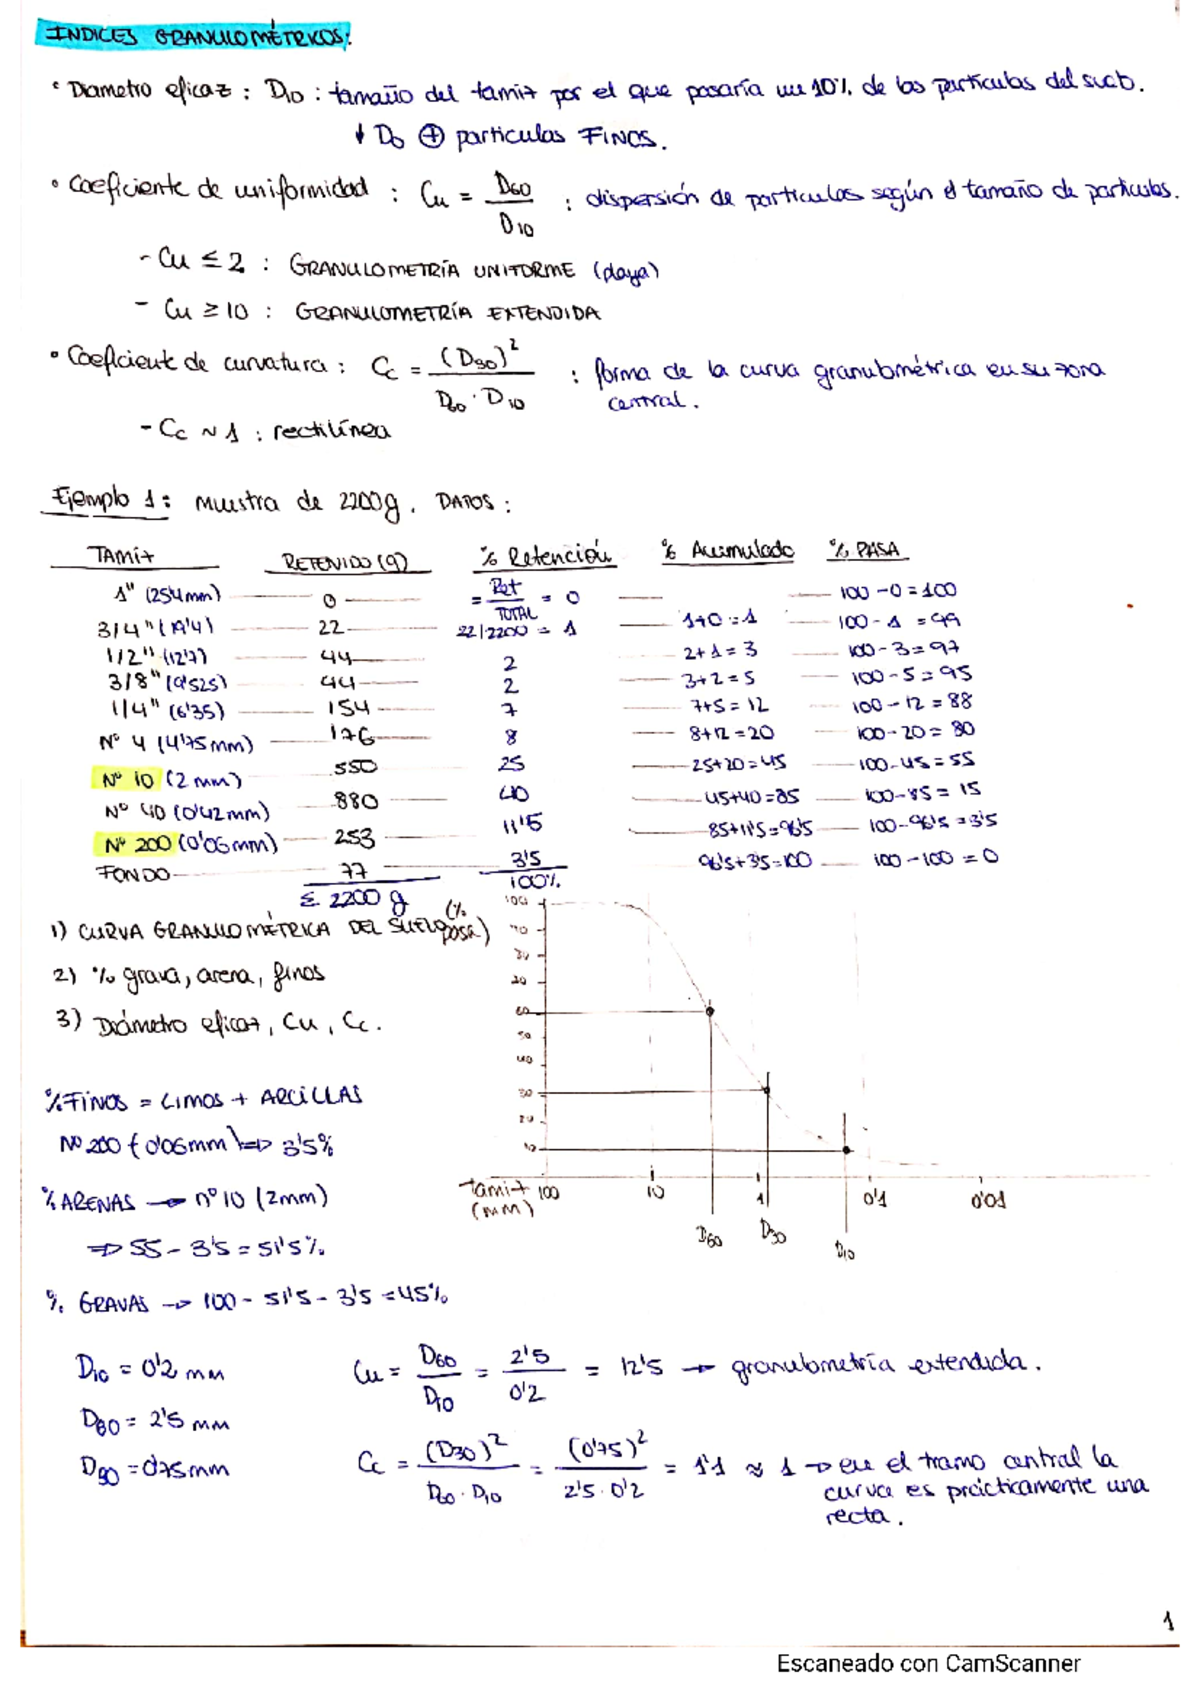 INDICES GRANULOMÉTRICOS:
• Diametro eficaz : D10 : tamaño del tamiz por el que pasaría un 10% de las partículas del suelo.
↓ D10 ⊕ partículas FINAS.
• Coeficiente de uniformidad : Cu = D60 / D10 : dispersión de partículas según el tamaño de partículas.
- Cu ≤ 2 : GRANULOMETRÍA UNIFORME (playa)
- Cu ≥ 10 : GRANULOMETRÍA EXTENDIDA
• Coeficiente de curvatura : Cc = (D30)² / D60 · D10 : forma de la curva granulométrica en su zona central.
- Cc ~ 1 : rectilínea
Ejemplo 1 : muestra de 2200g. DATOS :
TAMIZ RETENIDO (g) % Retención % Acumulado % PASA
1" (25'4mm) 0 = Ret / TOTAL = 0 — 100 - 0 = 100
3/4" (19'4) 22 22/2200 = 1 1+0 = 1 100 - 1 = 99
1/2" (12'7) 44 2 2+1 = 3 100 - 3 = 97
3/8" (9'525) 44 2 3+2 = 5 100 - 5 = 95
1/4" (6'35) 154 7 7+5 = 12 100 - 12 = 88
Nº 4 (4'75mm) 176 8 8+12 = 20 100 - 20 = 80
Nº 10 (2 mm) 550 25 25+20 = 45 100 - 45 = 55
Nº 40 (0'42mm) 880 40 45+40 = 85 100 - 85 = 15
Nº 200 (0'06mm) 253 11'5 85+11'5 = 96'5 100 - 96'5 = 3'5
FONDO 77 3'5 96'5+3'5 = 100 100 - 100 = 0
Σ 2200 g 100%
1) CURVA GRANULOMÉTRICA DEL SUELO
2) % grava, arena, finos
3) Diámetro eficaz, Cu, Cc.
(% pasa)
100
90
80
70
60
50
40
30
20
10
Tamiz (mm) 100 10 1 0'1 0'01
D60 D30 D10
% FINOS = LIMOS + ARCILLAS
Nº 200 (0'06mm) => 3'5%
% ARENAS → nº 10 (2mm)
=> 55 - 3'5 = 51'5%
% GRAVAS → 100 - 51'5 - 3'5 = 45%
D10 = 0'2 mm
D60 = 2'5 mm
D30 = 0'75 mm
Cu = D60 / D10 = 2'5 / 0'2 = 12'5 → granulometría extendida.
Cc = (D30)² / D60 · D10 = (0'75)² / 2'5 · 0'2 = 1'1 ≈ 1 → en el tramo central la
curva es prácticamente una
recta.
1
Escaneado con CamScanner